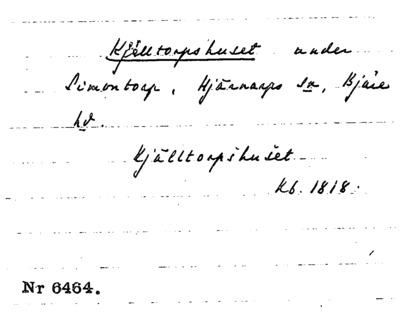 Kjälltorpshuset under
Simontorp, Hjärnarps sn, Bjäre
hd.
Kjälltorpshuset
Kb. 1818.
Nr 6464.